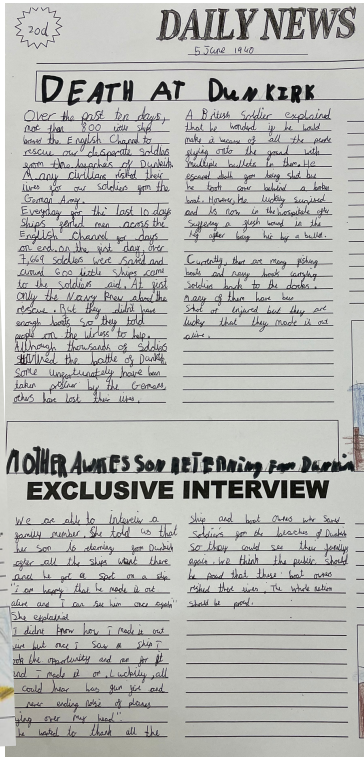 20d
DAILY NEWS
5 June 1940
DEATH AT DUNKIRK
Over the past ten days,
more than 800 little ships
the English Channel to
rescue our desperate soldiers
from the beaches of Dunkirk
Many civilians risked their
lives for our soldiers from the
German Army.
Everyday for the last 10 days
ships ferried men across the
English Channel for days
on end, on the first day, over
7,669 soldiers were saved and
around 600 little ships came
to the soldiers aid. At first
only the Navy knew about the
rescue. But they didn't have
enough boats so they told
people on the wireless to help.
Although thousands of soldiers
the battle of Dunkirk
some unfortunately have been
taken prisoner by the Germans,
others have lost their lives.
A British Soldier explained
that he wonderd if he would
make it because of all the people
onto the ground with
multiple bullets in them. He
escaped death from being shot but
he took cover behind a broken
boat. However, he luckily survived
and is now in the hospitale after
suffering a flesh wound in the
leg after being hit by a bullet.
Currently, there are many fishing
boats and navy boats carrying
Soldiers back to the docks.
many of them have been
shot or injured but they are
lucky that they made it out
alive.
MOTHER AWAKES Son RETERning From Dunkirk
EXCLUSIVE INTERVIEW
We are able to interview a
family member. She told us that
her son is returning from Dunkirk
after all the ships went there
and he got a spot on a ship
"i am happy that he made it out
alive and I can see him once again"
She explained
I didnt know how I made it out
but once I saw a ship I
took the opportunity and ran for it
and I made it on. Luckily, all
could hear was gun fire and
never ending noise of planes
flying over my head".
he wanted to thank all the
ship and boat owners who saved
Soldiers from the beaches of Dunkirk
so they could see their family
again. We think the public should
be proud that these boat owners
risked their lives. The whole nation
should be proud.